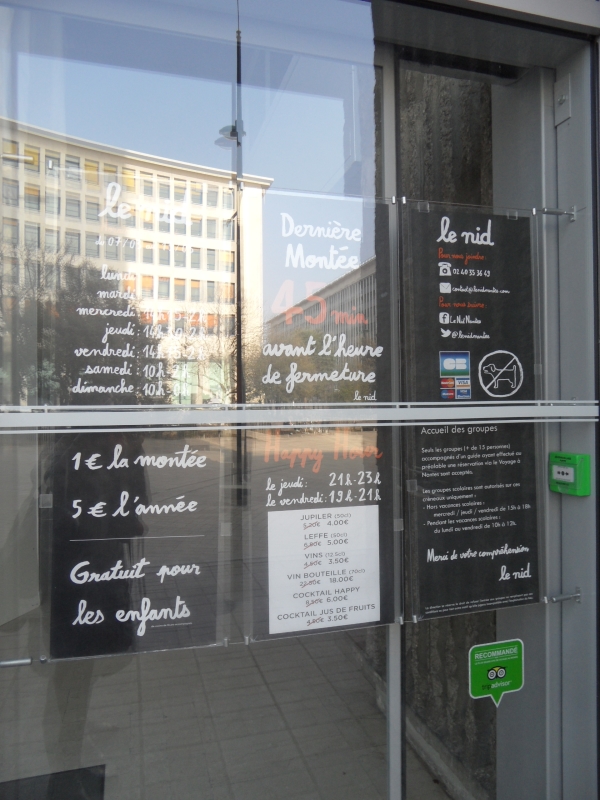 le
lundi
mardi
mercredi :
jeudi :
vendredi :
samedi : 10h
dimanche : 10h
1€ la montée
5€ l'année
Gratuit pour
les enfants
Dernière
Montée
45 min
avant l'heure
de fermeture
le nid
Happy Hour
le jeudi : 21h-23h
le vendredi : 19h-21h
JUPILER (50cl)
4.00€
LEFFE (50cl)
5.00€
VINS (12.5cl)
3.50€
VIN BOUTEILLE (70cl)
18.00€
COCKTAIL HAPPY
6.00€
COCKTAIL JUS DE FRUITS
3.50€
le nid
Pour nous joindre :
02 40 35 36 49
Pour nous suivre :
Le Nid Nantes
CB
VISA
Accueil des groupes
Seuls les groupes (+ de 15 persones)
accompagnés d'un guide ayant effectué au
préalable une réservation via le Voyage à
Nantes sont acceptés.
Les groupes scolaires sont autorisés sur ces
créneaux uniquement :
- Hors vacances scolaires :
mercredi / jeudi / vendredi de 15h à 18h
- Pendant les vacances scolaires :
du lundi au vendredi de 10h à 12h.
Merci de votre compréhension
le nid
RECOMMANDÉ
tripadvisor